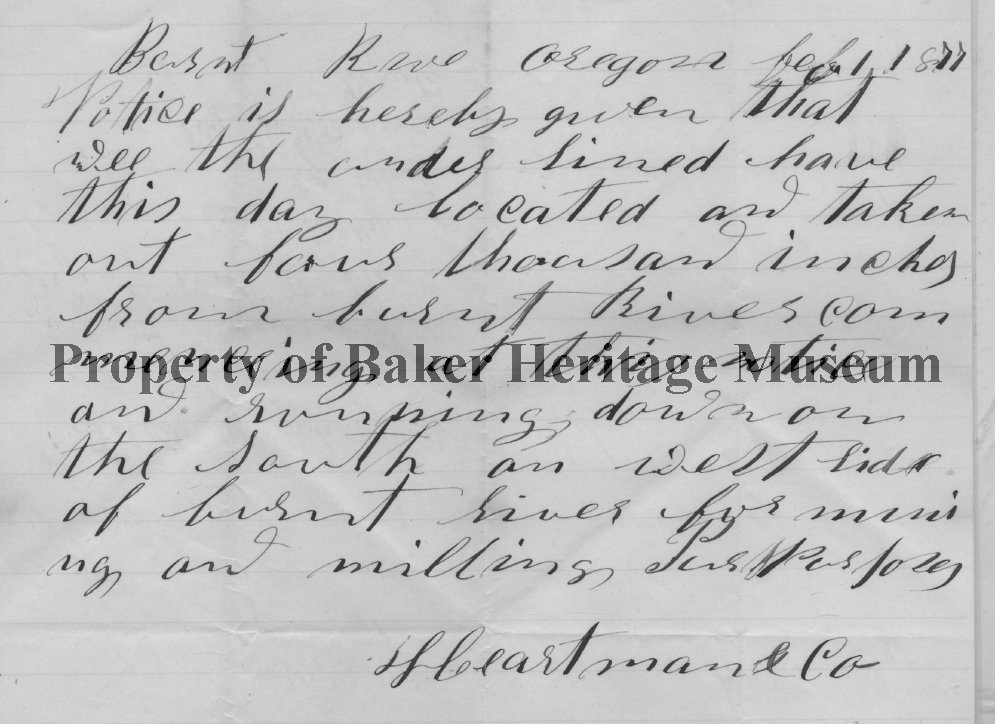 Burnt Rive Oregon feb 1 1877
Notice is hereby given that
wee the under sined have
this day located and taken
out four thousand inches
from burnt River com
mencing at this notice
Property of Baker Heritage Museum
and running down on
the south an west side
of burnt river for mini
ng and milling
Heartman & Co